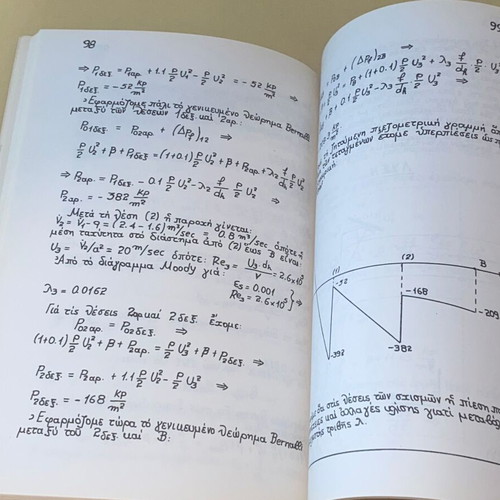 98
⇒ P₁δεξ. = P₁αρ. + 1.1 ρ/2 U₁² - ρ/2 U₂² = -52 kp/m² ⇒
P₁δεξ. = -52 kp/m²
Ἐφαρμόζομε πάλι τό γενικευμένο θεώρημα Bernoulli
μεταξύ τῶν θέσεων 1δεξ. καί 2αρ.:
P₀₁δεξ. = P₀₂αρ. + (ΔP_f)₁₂ ⇒
ρ/2 U₂² + β + P₁δεξ. = (1+0.1) ρ/2 U₂² + β + P₂αρ. + λ₂ ℓ/d_h ρ/2 U₂²
⇒ P₂αρ. = P₁δεξ. - 0.1 ρ/2 U₂² - λ₂ ℓ/d_h ρ/2 U₂² ⇒
P₂αρ. = -382 kp/m²
Μετά τή θέση (2) ἡ παροχή γίνεται:
V̇₂ = V̇₁ - q = (2.4 - 1.6) m³/sec = 0.8 m³/sec ὁπότε ἡ
μέση ταχύτητα στό διάστημα ἀπό (2) ἕως B εἶναι:
U₃ = V̇₂/a² = 20 m/sec ὁπότε: Re₃ = U₃·d_h/ν = 2.6×10⁵
Ἀπό τό διάγραμμα Moody γιά: ε₃ = 0.001
Re₃ = 2.6×10⁵ } ⇒
λ₃ = 0.0162
Γιά τίς θέσεις 2αρ. καί 2δεξ. ἔχομε:
P₀₂αρ. = P₀₂δεξ. ⇒
(1+0.1) ρ/2 U₂² + β + P₂αρ. = ρ/2 U₃² + β + P₂δεξ. ⇒
P₂δεξ. = P₂αρ. + 1.1 ρ/2 U₂² - ρ/2 U₃² ⇒
P₂δεξ. = -168 kp/m²
Ἐφαρμόζομε τώρα τό γενικευμένο θεώρημα Bernoulli
μεταξύ τοῦ 2δεξ. καί B:
99
+ (ΔP_f)₂B ⇒
(1+0.1) ρ/2 U₃² + λ₃ ℓ/d_h · ρ/2 U₃²
0.1 ρ/2 U₃² - λ₃ ℓ/d_h ρ/2 U₃² ⇒
πιεζομετρική γραμμή
ἔχομε ὑπερπιέσεις
(1)
(2)
B
-52
-168
-209
-392
-382
θά στίς θέσεις τῶν σχισμῶν ἡ πίεση
καί ἀλλαγές κλίσης γιατί
τριβῆς λ.